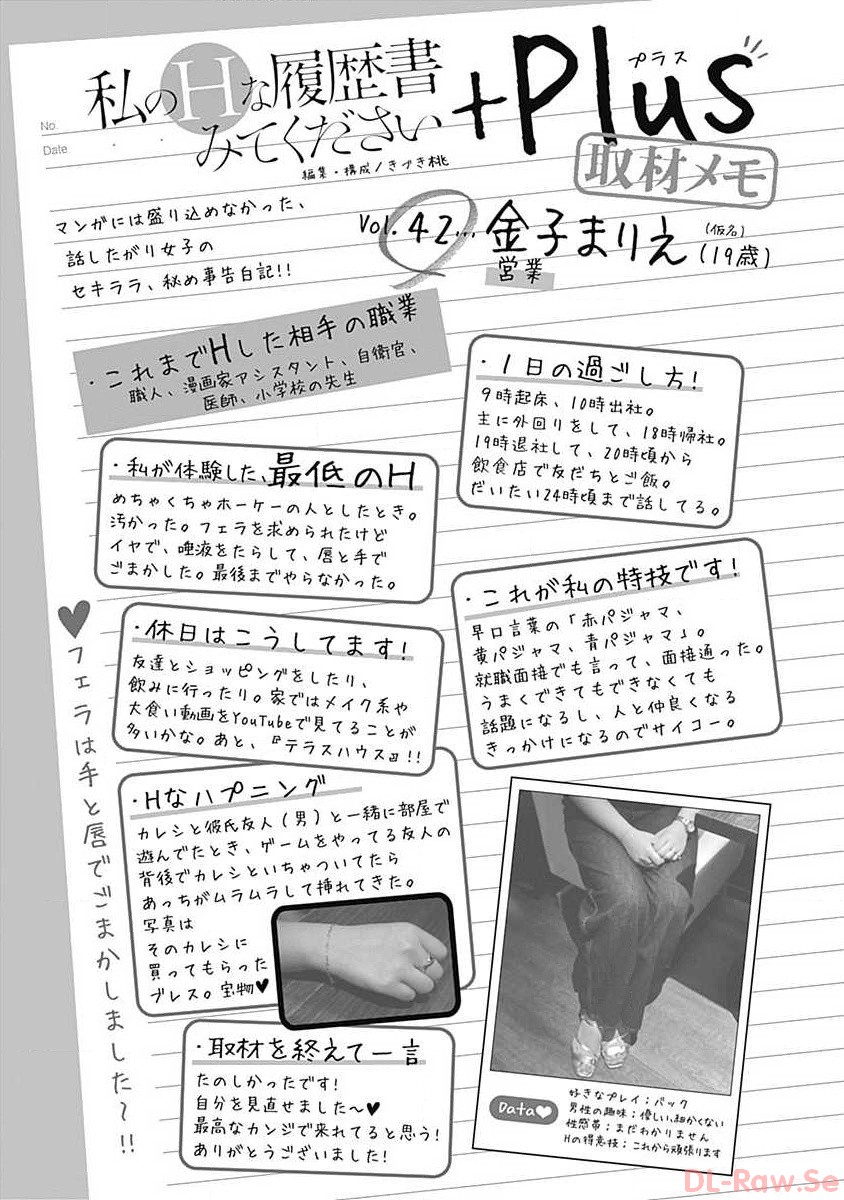 No.
Date
私のHな履歴書
みてください
+Plus
プラス
編集・構成/きづき桃
取材メモ
マンガには盛り込めなかった、
話したがり女子の
セキララ、秘め事告白記!!
Vol.42… 金子まりえ(仮名)(19歳)
営業
・これまでHした相手の職業
職人、漫画家アシスタント、自衛官、
医師、小学校の先生
・1日の過ごし方!
9時起床、10時出社。
主に外回りをして、18時帰社。
19時退社して、20時頃から
飲食店で友だちとご飯。
だいたい24時頃まで話してる。
・私が体験した、最低のH
めちゃくちゃホーケーの人としたとき。
汚かった。フェラを求められたけど
イヤで、唾液をたらして、唇と手で
ごまかした。最後までやらなかった。
・これが私の特技です!
早口言葉の「赤パジャマ、
黄パジャマ、青パジャマ」。
就職面接でも言って、面接通った。
うまくできてもできなくても
話題になるし、人と仲良くなる
きっかけになるのでサイコー。
・休日はこうしてます!
友達とショッピングをしたり、
飲みに行ったり。家ではメイク系や
大食い動画をYouTubeで見てることが
多いかな。あと、『テラスハウス』!!
・Hなハプニング
カレシと彼氏友人(男)と一緒に部屋で
遊んでたとき、ゲームをやってる友人の
背後でカレシといちゃついてたら
あっちがムラムラして挿れてきた。
写真は
そのカレシに
買ってもらった
ブレス。宝物♥
・取材を終えて一言
たのしかったです!
自分を見直せました〜♥
最高なカンジで来れてると思う!
ありがとうございました!
♥フェラは手と唇でごまかしました〜!!
Data♥
好きなプレイ;バック
男性の趣味;優しい、細かくない
性感帯;まだわかりません
Hの得意技;これから頑張ります
DL-Raw.Se